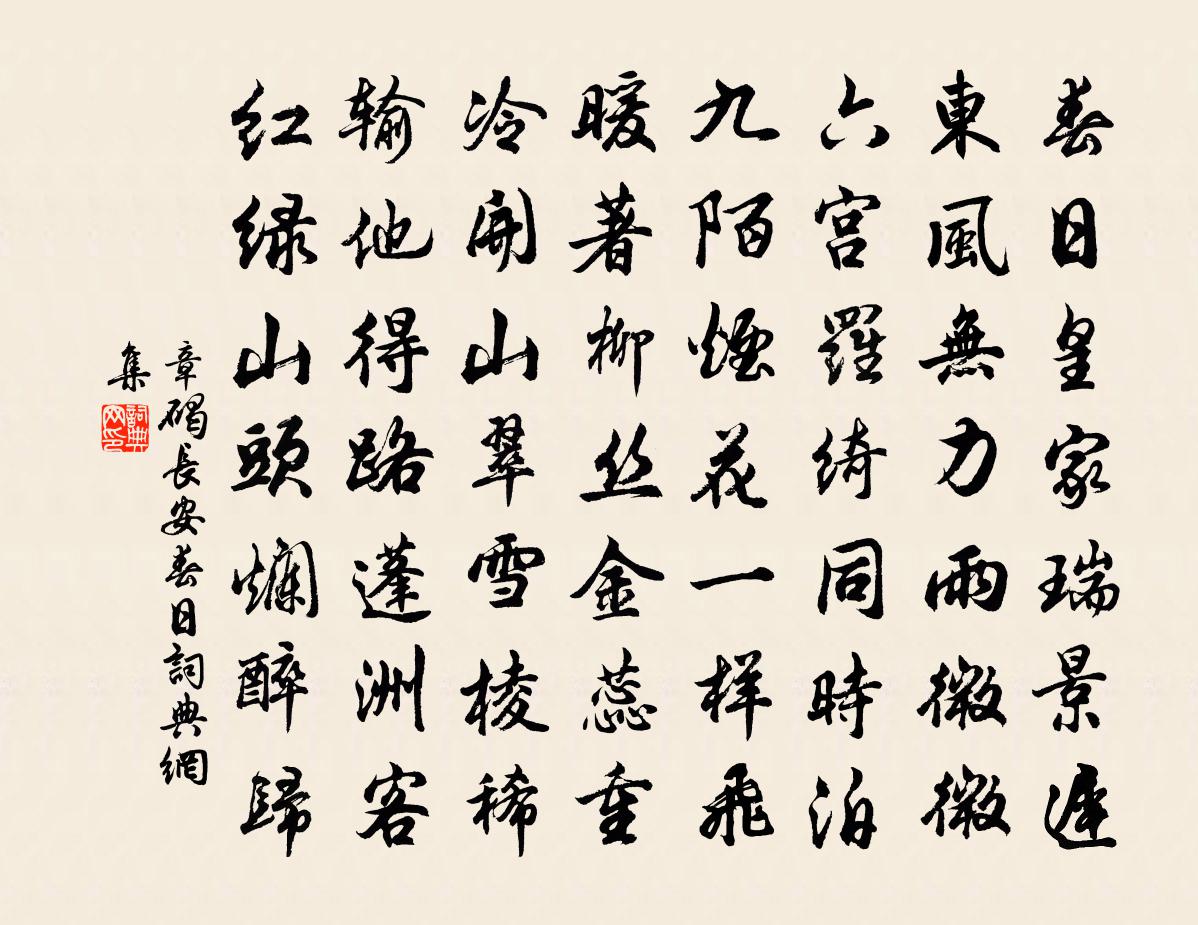 春日皇家瑞景遲
東風無力雨微微
六宮羅綺同時泊
九陌煙花一样飛
暖著柳丝金蕊重
冷開山翠雪棱稀
输他得路蓬洲客
红绿山頭爛醉歸
章碣長安春日詞典網
集
詞典
网印